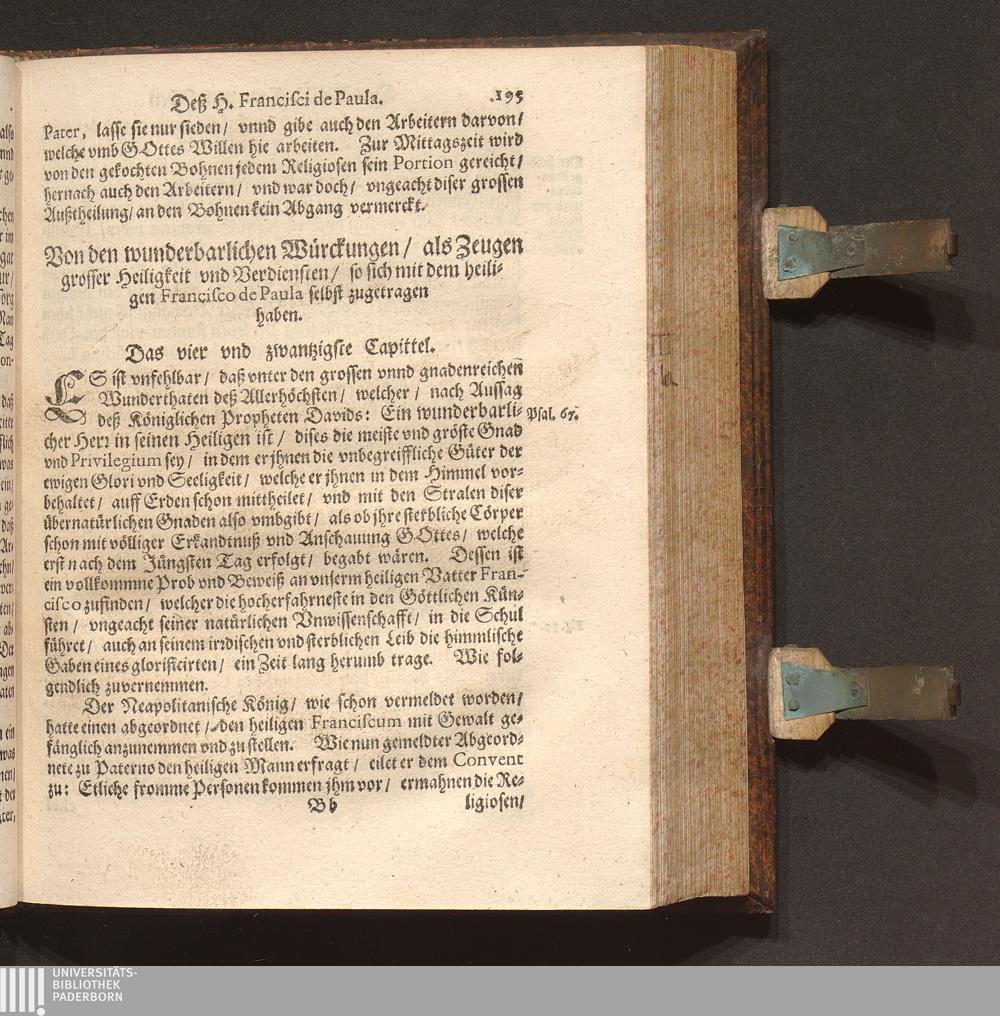 Deß H. Francisci de Paula. 195
Pater, lasse sie nur sieden/ vnnd gibe auch den Arbeitern darvon/
welche vmb GOttes Willen hie arbeiten. Zur Mittagszeit wird
von den gekochten Bohnen jedem Religiosen sein Portion gereicht/
hernach auch den Arbeitern/ vnd war doch/ vngeacht diser grossen
Außtheilung/ an den Bohnen kein Abgang vermerckt.
Von den wunderbarlichen Würckungen/ als Zeugen
grosser Heiligkeit vnd Verdiensten/ so sich mit dem heili-
gen Francisco de Paula selbst zugetragen
haben.
Das vier vnd zwantzigste Capittel.
ES ist vnfehlbar/ daß vnter den grossen vnnd gnadenreichen
Wunderthaten deß Allerhöchsten/ welcher/ nach Aussag
deß Königlichen Propheten Davids: Ein wunderbarli- Psal. 67.
cher Herr in seinen Heiligen ist/ dises die meiste vnd gröste Gnad
vnd Privilegium sey/ in dem er jhnen die vnbegreiffliche Güter der
ewigen Glori vnd Seeligkeit/ welche er jhnen in dem Himmel vor-
behaltet/ auff Erden schon mittheilet/ vnd mit den Stralen diser
übernatürlichen Gnaden also vmbgibt/ als ob jhre sterbliche Cörper
schon mit völliger Erkandtnuß vnd Anschauung GOttes/ welche
erst nach dem Jüngsten Tag erfolgt/ begabt wären. Dessen ist
ein vollkommne Prob vnd Beweiß an vnserm heiligen Vatter Fran-
cisco zufinden/ welcher die hocherfahrneste in den Göttlichen Kün-
sten/ vngeacht seiner natürlichen Vnwissenschafft/ in die Schul
führet/ auch an seinem irrdischen vnd sterblichen Leib die himmlische
Gaben eines glorificirten/ ein Zeit lang herumb trage. Wie fol-
gendlich zuvernemmen.
Der Neapolitanische König/ wie schon vermeldet worden/
hatte einen abgeordnet/ den heiligen Franciscum mit Gewalt ge-
fänglich anzunemmen vnd zu stellen. Wie nun gemeldter Abgeord-
nete zu Paterno den heiligen Mann erfragt/ eilet er dem Convent
zu: Etliche fromme Personen kommen jhm vor/ ermahnen die Re-
Bb ligiosen/
UNIVERSITÄTS-
BIBLIOTHEK
PADERBORN